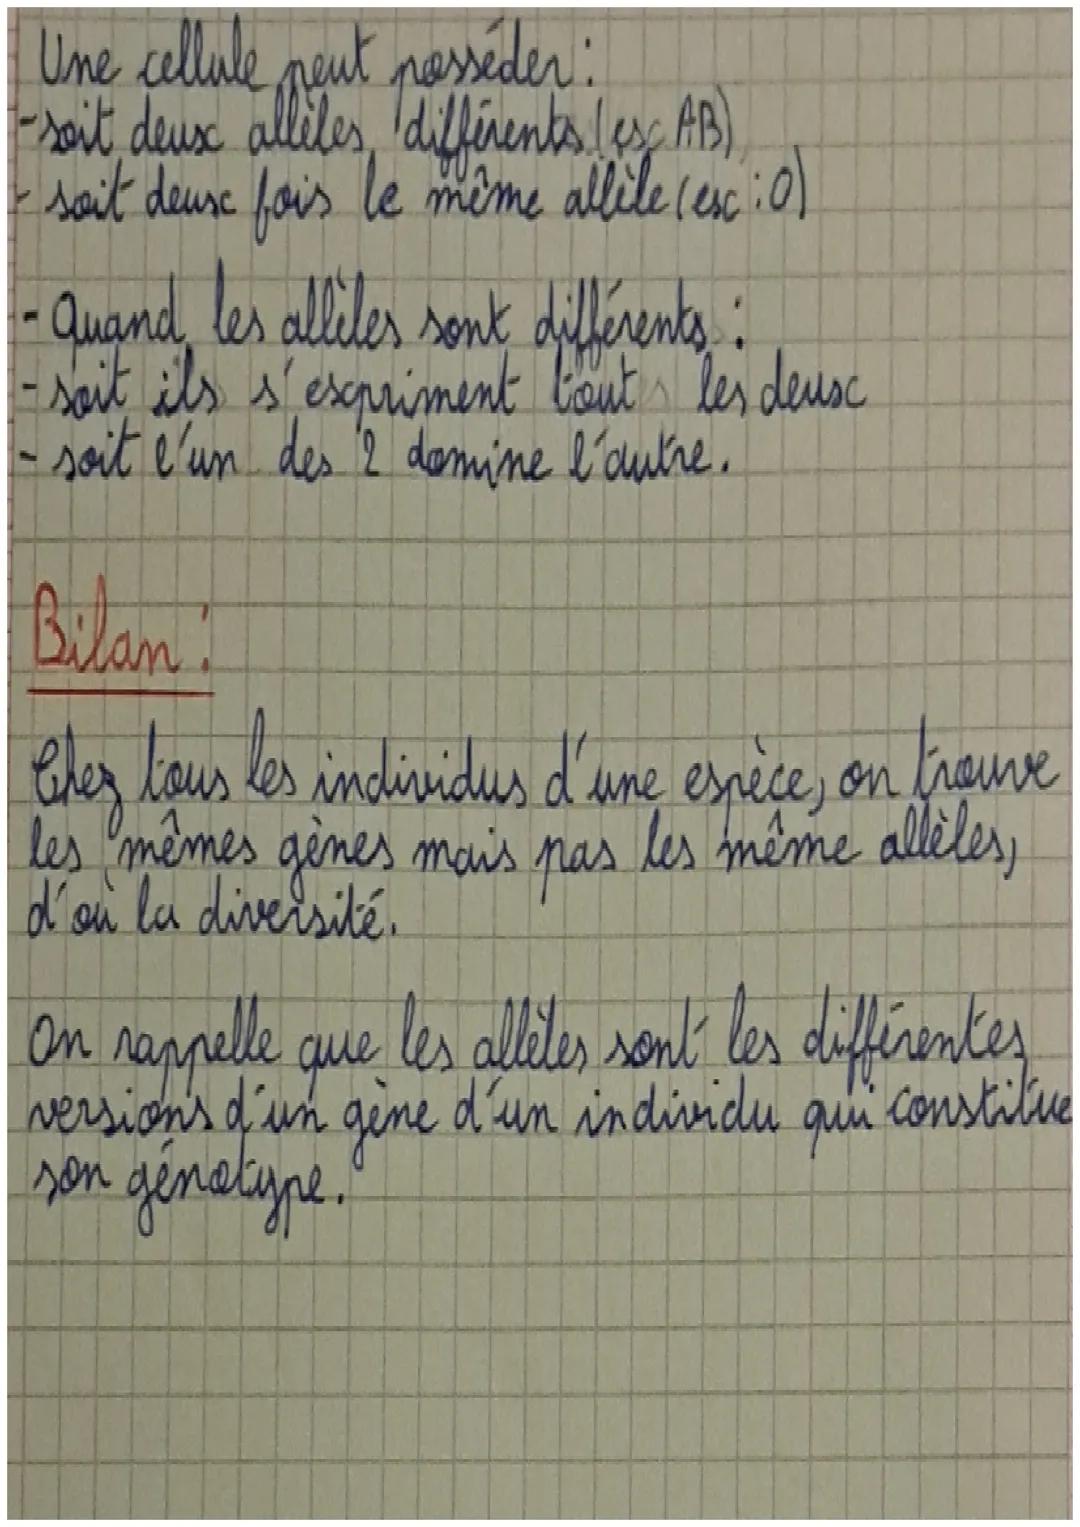 Une cellule peut posséder :
- soit deux allèles différents (ex AB)
- soit deux fois le même allèle (ex : O)
- Quand les allèles sont différents :
- soit ils s'expriment tout les deux
- soit l'un des 2 domine l'autre.
Bilan :
Chez tous les individus d'une espèce, on trouve
les mêmes gènes mais pas les même allèles,
d'où la diversité.
On rappelle que les allèles sont les différentes
versions d'un gène d'un individu qui constitue
son génotype.